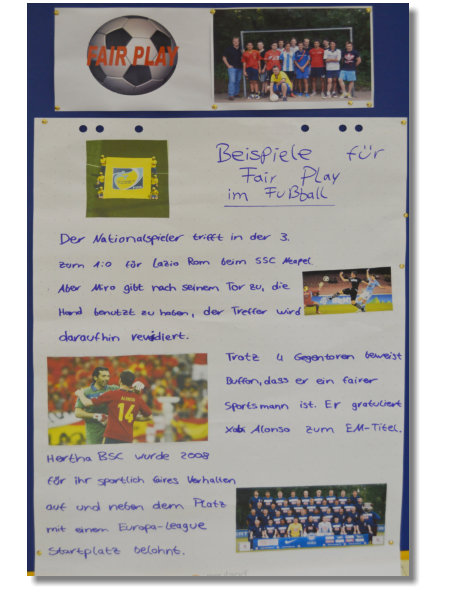 FAIR PLAY
Beispiele für
Fair Play
im Fußball
Der Nationalspieler trifft in der 3.
zum 1:0 für Lazio Rom beim SSC Neapel.
Aber Miro gibt nach seinem Tor zu, die
Hand benutzt zu haben, der Treffer wird
daraufhin revidiert.
Trotz 4 Gegentoren beweist
Buffon, dass er ein fairer
Sportsmann ist. Er gratuliert
Xabi Alonso zum EM-Titel.
ALONSO
14
Hertha BSC wurde 2008
für ihr sportlich faires Verhalten
auf und neben dem Platz
mit einem Europa-League
Startplatz belohnt.